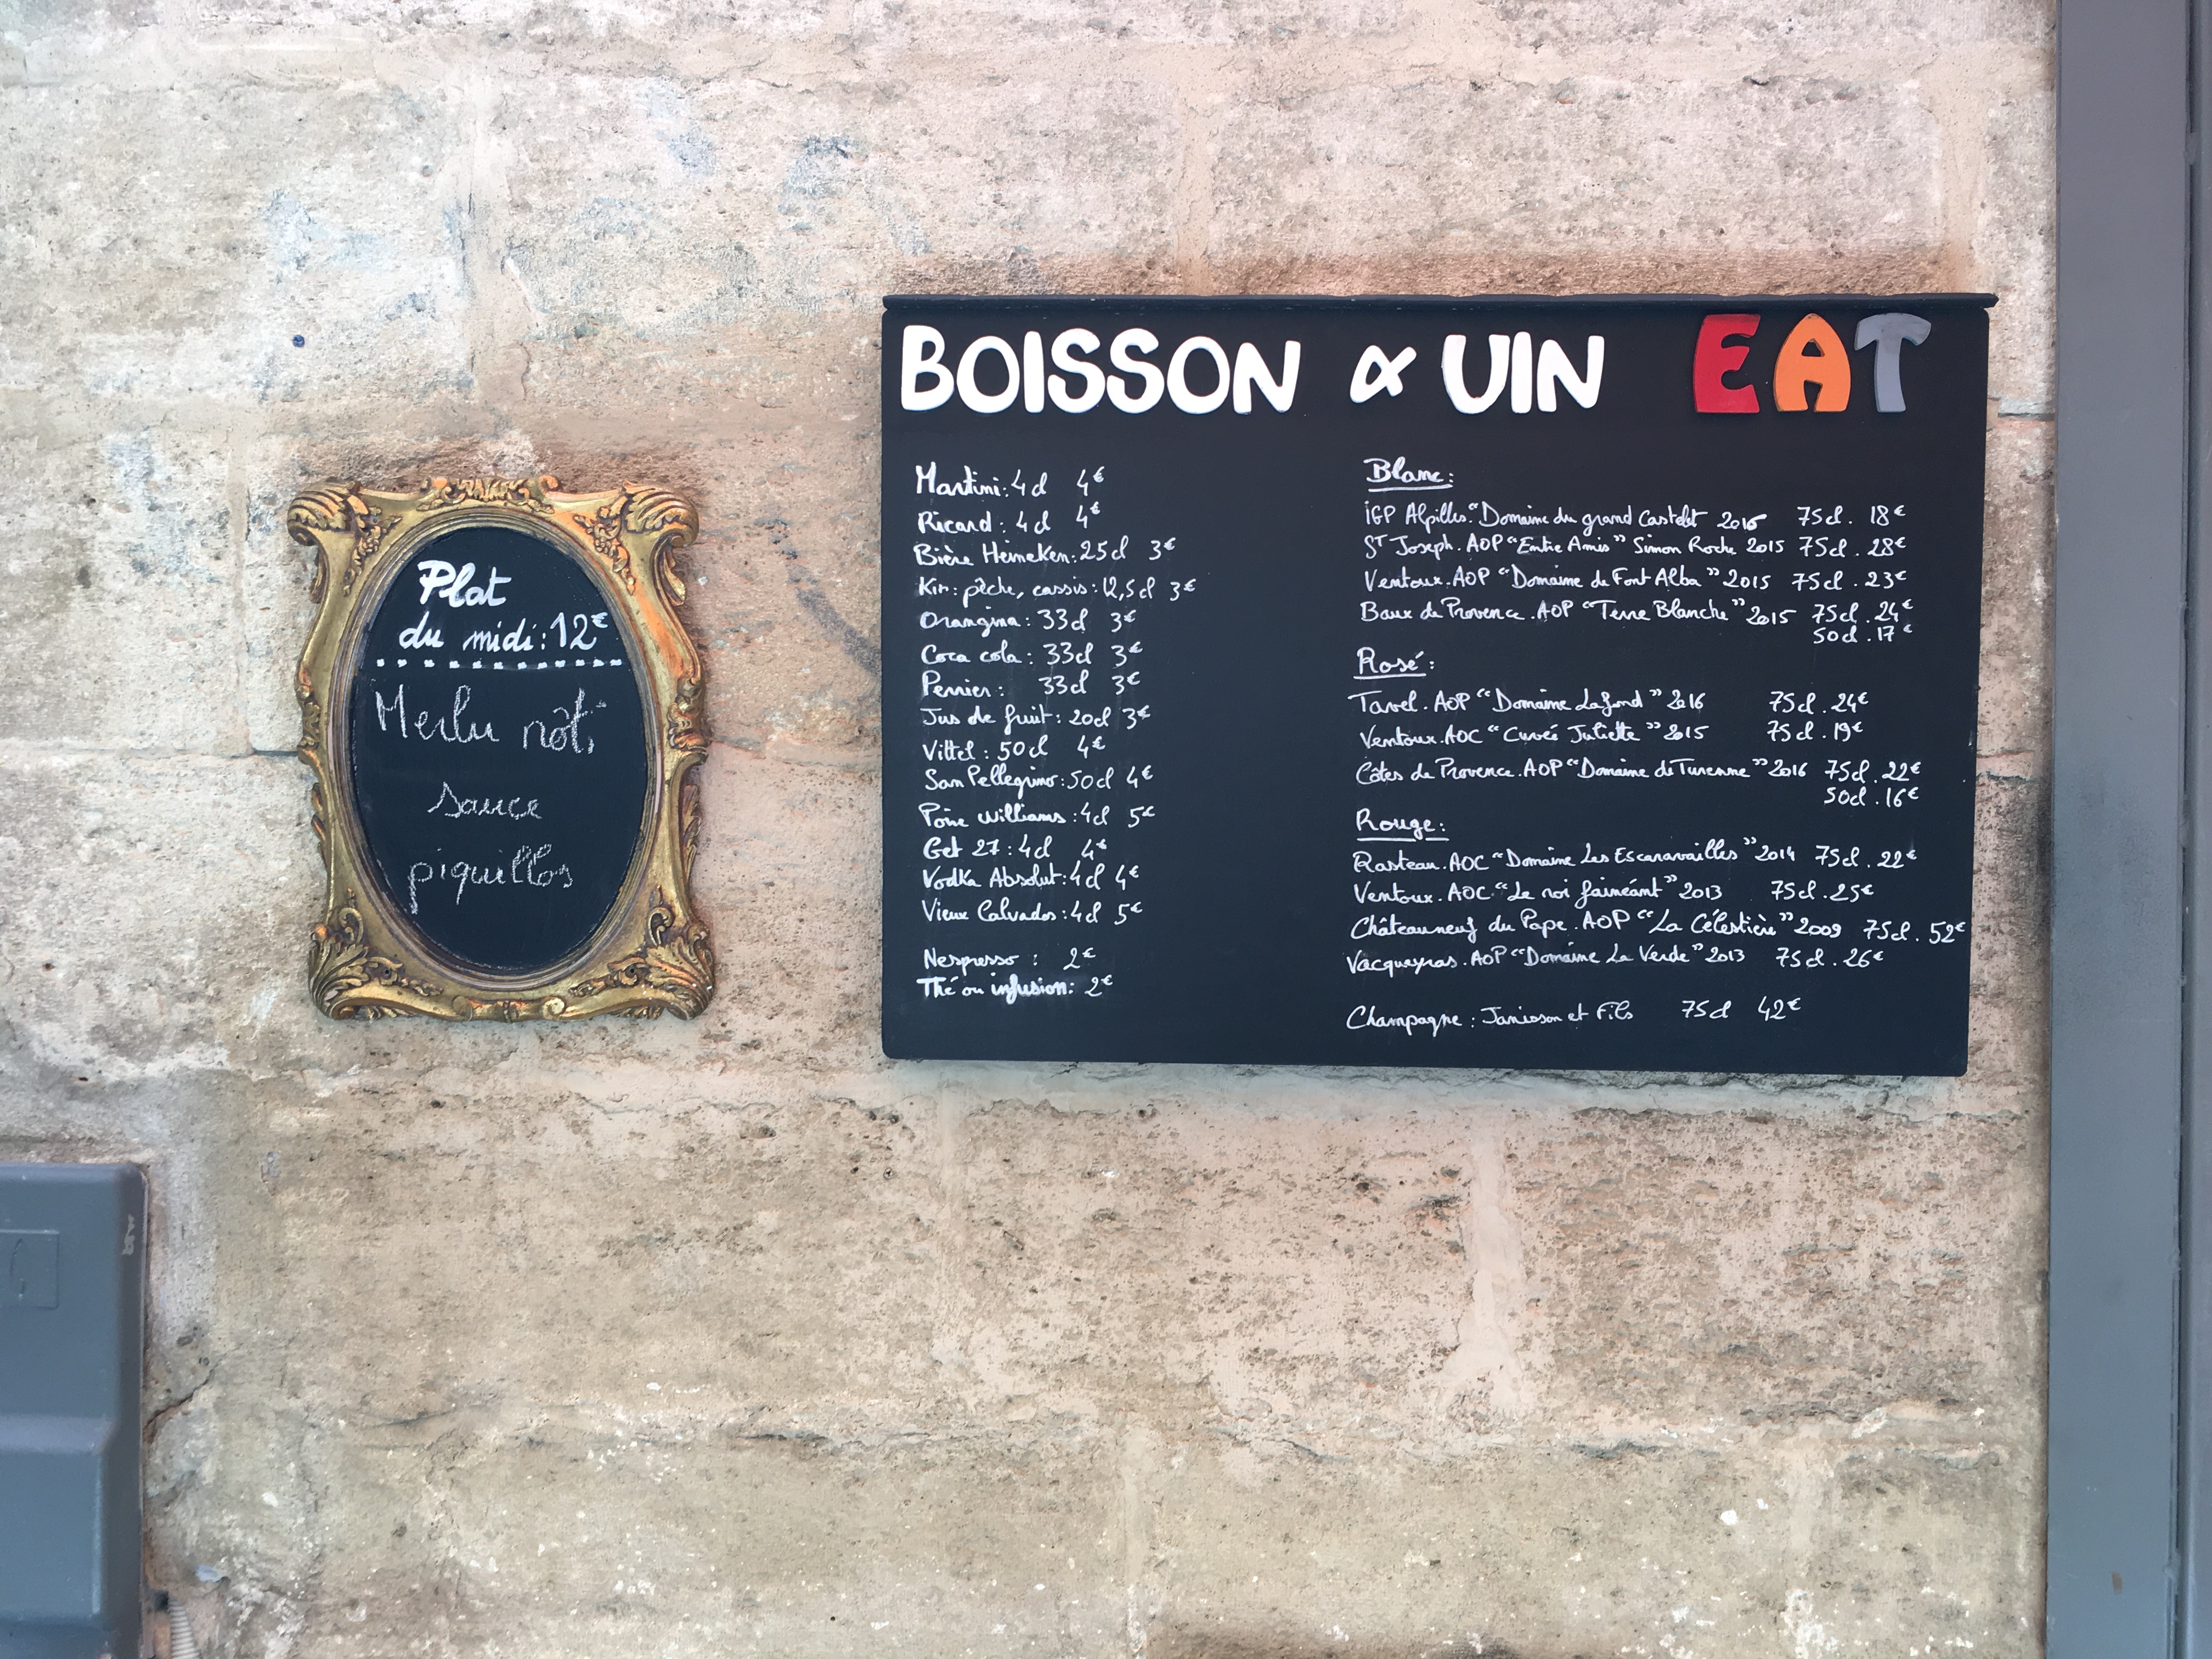 Plat
du midi: 12€
Merlu rôti
sauce
piquillos
BOISSON & VIN EAT
Martini: 4cl 4€
Ricard: 4cl 4€
Bière Heineken: 25cl 3€
Kir: pêche, cassis: 12,5cl 3€
Orangina: 33cl 3€
Coca cola: 33cl 3€
Perrier: 33cl 3€
Jus de fruit: 20cl 3€
Vittel: 50cl 4€
San Pellegrino: 50cl 4€
Poire williams: 4cl 5€
Get 27: 4cl 4€
Vodka Absolut: 4cl 4€
Vieux Calvados: 4cl 5€
Nespresso : 2€
Thé ou infusion: 2€
Blanc:
IGP Alpilles. "Domaine du grand Castelet 2016 75cl. 18€
ST Joseph. AOP "Entre Amis" Simon Roche 2015 75cl. 28€
Ventoux. AOP "Domaine de Font Alba" 2015 75cl. 23€
Baux de Provence. AOP "Terre Blanche" 2015 75cl. 24€
50cl. 17€
Rosé:
Tavel. AOP "Domaine Lafond" 2016 75cl. 24€
Ventoux. AOC "Cuvée Juliette" 2015 75cl. 19€
Côtes de Provence. AOP "Domaine de Turenne" 2016 75cl. 22€
50cl. 16€
Rouge:
Rasteau. AOC "Domaine Les Escaravailles" 2014 75cl. 22€
Ventoux. AOC "Le roi fainéant" 2013 75cl. 25€
Châteauneuf du Pape. AOP "La Célestière" 2009 75cl. 52€
Vacqueyras. AOP "Domaine La Verde" 2013 75cl. 26€
Champagne: Janisson et Fils 75cl 42€